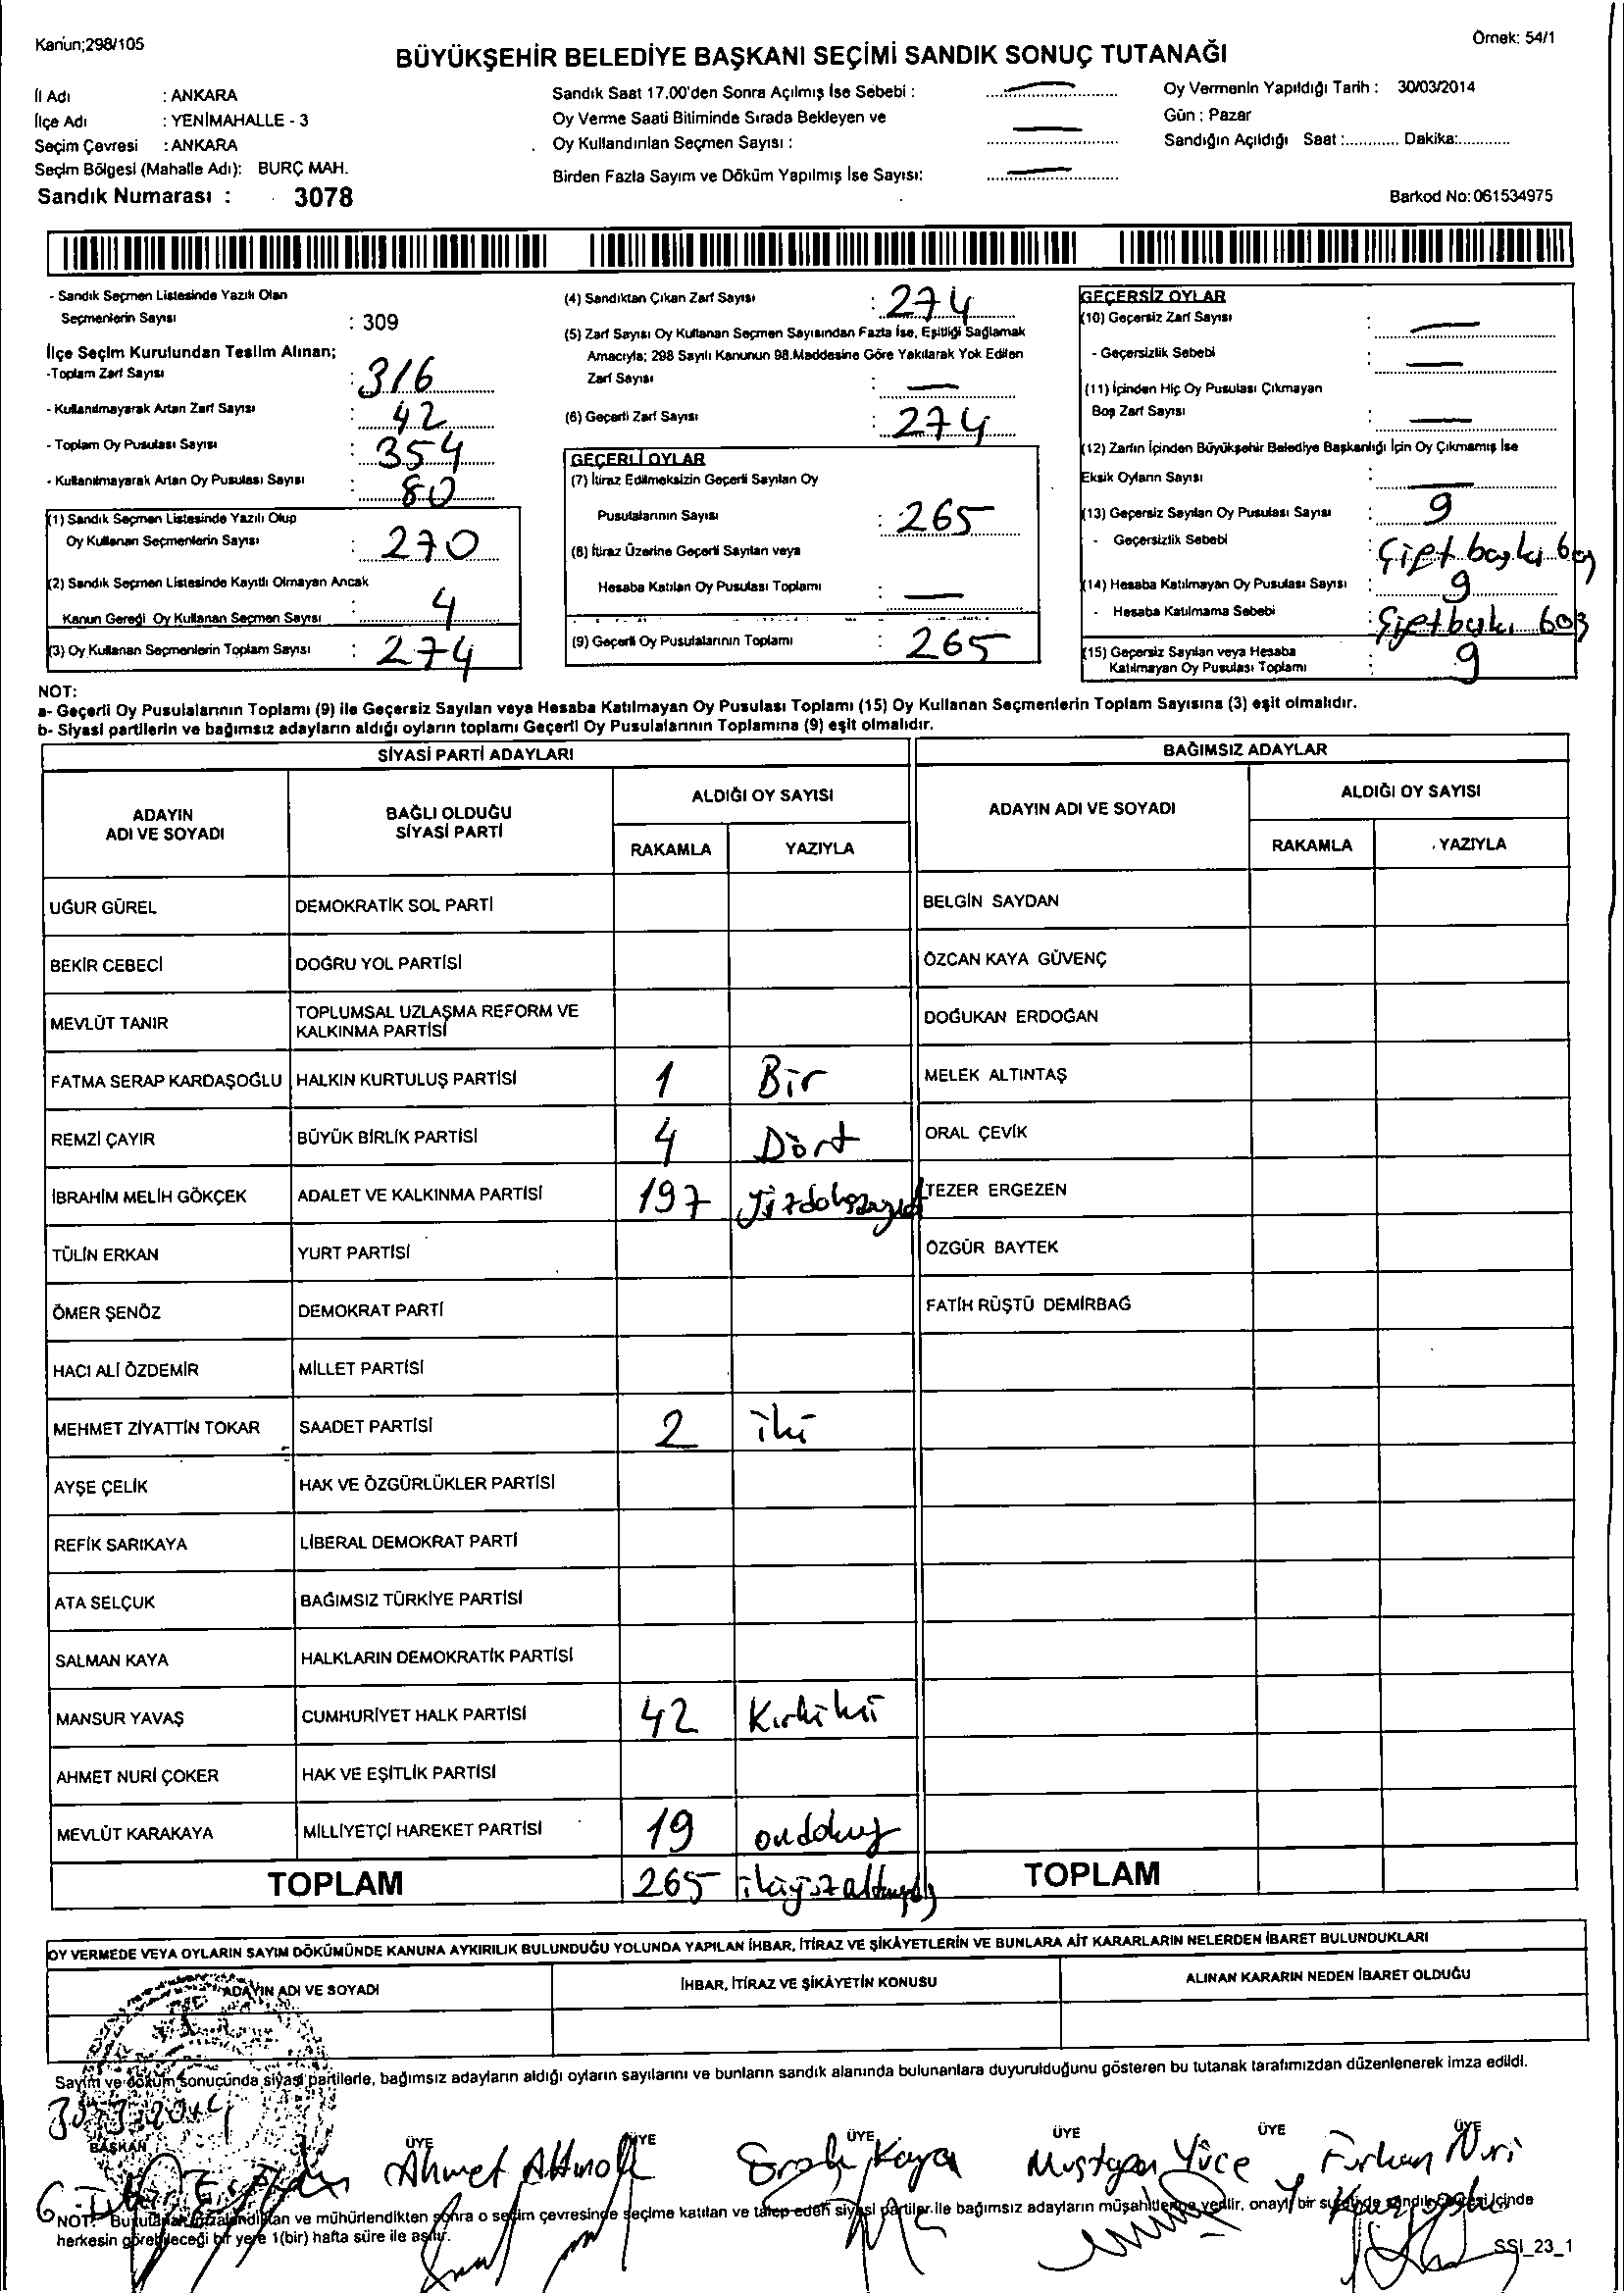 Kanun;298/105
Örnek: 54/1
BÜYÜKŞEHİR BELEDİYE BAŞKANI SEÇİMİ SANDIK SONUÇ TUTANAĞI
İl Adı : ANKARA
İlçe Adı : YENİMAHALLE - 3
Seçim Çevresi : ANKARA
Seçim Bölgesi (Mahalle Adı): BURÇ MAH.
Sandık Numarası : 3078
Sandık Saat 17.00'den Sonra Açılmış İse Sebebi : —
Oy Verme Saati Bitiminde Sırada Bekleyen ve
Oy Kullandırılan Seçmen Sayısı : —
Birden Fazla Sayım ve Döküm Yapılmış İse Sayısı: —
Oy Vermenin Yapıldığı Tarih : 30/03/2014
Gün : Pazar
Sandığın Açıldığı Saat :............ Dakika:............
Barkod No: 061534975
- Sandık Seçmen Listesinde Yazılı Olan
Seçmenlerin Sayısı : 309
İlçe Seçim Kurulundan Teslim Alınan;
-Toplam Zarf Sayısı : 316
- Kullanılmayarak Artan Zarf Sayısı : 42
- Toplam Oy Pusulası Sayısı : 354
- Kullanılmayarak Artan Oy Pusulası Sayısı : 80
(1) Sandık Seçmen Listesinde Yazılı Olup
Oy Kullanan Seçmenlerin Sayısı : 270
(2) Sandık Seçmen Listesinde Kayıtlı Olmayan Ancak
Kanun Gereği Oy Kullanan Seçmen Sayısı : 4
(3) Oy Kullanan Seçmenlerin Toplam Sayısı : 274
(4) Sandıktan Çıkan Zarf Sayısı : 274
(5) Zarf Sayısı Oy Kullanan Seçmen Sayısından Fazla İse, Eşitliği Sağlamak
Amacıyla; 298 Sayılı Kanunun 98.Maddesine Göre Yakılarak Yok Edilen
Zarf Sayısı : —
(6) Geçerli Zarf Sayısı : 274
GEÇERLİ OYLAR
(7) İtiraz Edilmeksizin Geçerli Sayılan Oy
Pusulalarının Sayısı : 265
(8) İtiraz Üzerine Geçerli Sayılan veya
Hesaba Katılan Oy Pusulası Toplamı : —
(9) Geçerli Oy Pusulalarının Toplamı : 265
GEÇERSİZ OYLAR
(10) Geçersiz Zarf Sayısı : —
- Geçersizlik Sebebi : —
(11) İçinden Hiç Oy Pusulası Çıkmayan
Boş Zarf Sayısı : —
(12) Zarfın İçinden Büyükşehir Belediye Başkanlığı İçin Oy Çıkmamış İse
Eksik Oyların Sayısı : —
(13) Geçersiz Sayılan Oy Pusulası Sayısı : 9
- Geçersizlik Sebebi : Çift baskı boş
(14) Hesaba Katılmayan Oy Pusulası Sayısı : 9
- Hesaba Katılmama Sebebi : Çift baskı boş
(15) Geçersiz Sayılan veya Hesaba
Katılmayan Oy Pusulası Toplamı : 9
NOT:
a- Geçerli Oy Pusulalarının Toplamı (9) ile Geçersiz Sayılan veya Hesaba Katılmayan Oy Pusulası Toplamı (15) Oy Kullanan Seçmenlerin Toplam Sayısına (3) eşit olmalıdır.
b- Siyasi partilerin ve bağımsız adayların aldığı oyların toplamı Geçerli Oy Pusulalarının Toplamına (9) eşit olmalıdır.
SİYASİ PARTİ ADAYLARI
BAĞIMSIZ ADAYLAR
ADAYIN ADI VE SOYADI
BAĞLI OLDUĞU SİYASİ PARTİ
ALDIĞI OY SAYISI
RAKAMLA YAZIYLA
ADAYIN ADI VE SOYADI
ALDIĞI OY SAYISI
RAKAMLA YAZIYLA
UĞUR GÜREL DEMOKRATİK SOL PARTİ BELGİN SAYDAN
BEKİR CEBECİ DOĞRU YOL PARTİSİ ÖZCAN KAYA GÜVENÇ
MEVLÜT TANIR TOPLUMSAL UZLAŞMA REFORM VE KALKINMA PARTİSİ DOĞUKAN ERDOĞAN
FATMA SERAP KARDAŞOĞLU HALKIN KURTULUŞ PARTİSİ 1 Bir MELEK ALTINTAŞ
REMZİ ÇAYIR BÜYÜK BİRLİK PARTİSİ 4 Dört ORAL ÇEVİK
İBRAHİM MELİH GÖKÇEK ADALET VE KALKINMA PARTİSİ 197 TEZER ERGEZEN
TÜLİN ERKAN YURT PARTİSİ ÖZGÜR BAYTEK
ÖMER ŞENÖZ DEMOKRAT PARTİ FATİH RÜŞTÜ DEMİRBAĞ
HACI ALİ ÖZDEMİR MİLLET PARTİSİ
MEHMET ZİYATTİN TOKAR SAADET PARTİSİ 2 iki
AYŞE ÇELİK HAK VE ÖZGÜRLÜKLER PARTİSİ
REFİK SARIKAYA LİBERAL DEMOKRAT PARTİ
ATA SELÇUK BAĞIMSIZ TÜRKİYE PARTİSİ
SALMAN KAYA HALKLARIN DEMOKRATİK PARTİSİ
MANSUR YAVAŞ CUMHURİYET HALK PARTİSİ 42 Kırkiki
AHMET NURİ ÇOKER HAK VE EŞİTLİK PARTİSİ
MEVLÜT KARAKAYA MİLLİYETÇİ HAREKET PARTİSİ 19 ondokuz
TOPLAM 265 TOPLAM
OY VERMEDE VEYA OYLARIN SAYIM DÖKÜMÜNDE KANUNA AYKIRILIK BULUNDUĞU YOLUNDA YAPILAN İHBAR, İTİRAZ VE ŞİKÂYETLERİN VE BUNLARA AİT KARARLARIN NELERDEN İBARET BULUNDUKLARI
ADAYIN ADI VE SOYADI İHBAR, İTİRAZ VE ŞİKÂYETİN KONUSU ALINAN KARARIN NEDEN İBARET OLDUĞU
Sayım ve döküm sonucunda siyasi partilerle, bağımsız adayların aldığı oyların sayılarını ve bunların sandık alanında bulunanlara duyurulduğunu gösteren bu tutanak tarafımızdan düzenlenerek imza edildi.
BAŞKAN ÜYE ÜYE ÜYE ÜYE ÜYE ÜYE
Ahmet Kaya Mustafa Yüce Furkan Nuri
NOT: Bu tutanak imzalandıktan ve mühürlendikten sonra o seçim çevresinde seçime katılan ve talep eden siyasi partiler ile bağımsız adayların müşahitlerine verilir, onaylı bir sureti de sandık çevresi içinde
herkesin görebileceği bir yere 1(bir) hafta süre ile asılır.
SSI_23_1